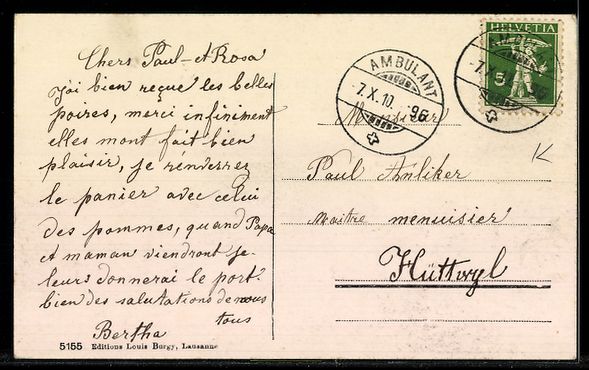 Chers Paul et Rosa
j'ai bien reçue les belles
poires, merci infiniment
elles mont fait bien
plaisir, je rénverrez
le panier avec celui
des pommes, quand Papa
et maman viendront je
leurs donnerai le port.
bien des salutations de nous
tous
Bertha
5155 Editions Louis Burgy, Lausanne
HELVETIA
5
AMBULANT
-7.X.10. -96
Monsieur
Paul Anliker
Maître menuisier
Hüttwyl